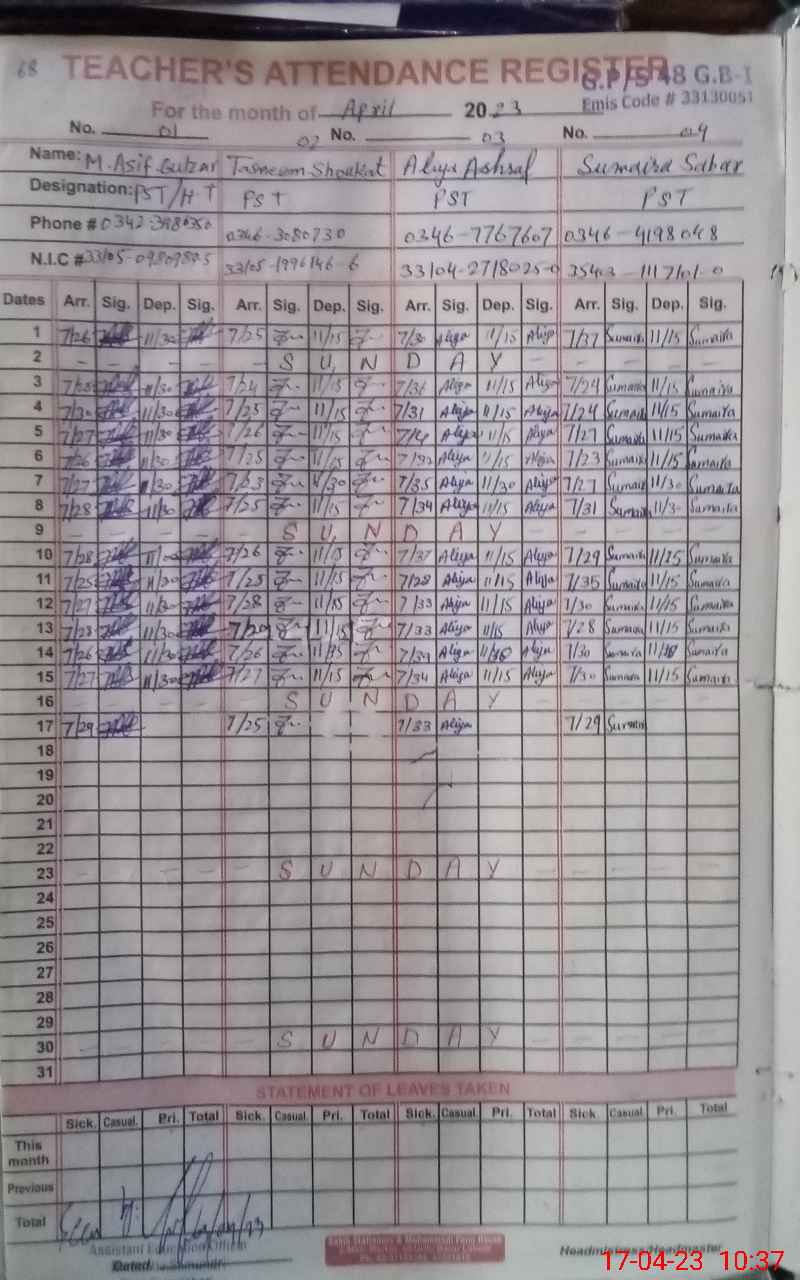 68 TEACHER'S ATTENDANCE REGISTER
G.P/S 48 G.B-I
For the month of April 2023 Emis Code # 33130051
No. 01 02 No. 03 No. 04
Name: M. Asif Gulzar Tasneem Shoukat Aliya Ashraf Sumaira Sabar
Designation: PST/H T PST PST PST
Phone # 0346-3080730 0346-7767607 0346-4198048
N.I.C # 33104-2718025-0
Dates Arr. Sig. Dep. Sig. Arr. Sig. Dep. Sig. Arr. Sig. Dep. Sig. Arr. Sig. Dep. Sig.
1 7/26 11/30 7/25 11/15 7/30 Aliya 11/15 Aliya 7/37 Sumaira 11/15 Sumaira
2 S U N D A Y
3 11/30 7/24 11/15 Aliya 11/15 Aliya 7/24 Sumaira 11/15 Sumaira
4 7/30 11/30 7/25 11/15 7/31 Aliya 11/15 Aliya 7/24 Sumaira 11/15 Sumaira
5 7/27 11/30 7/26 11/15 Aliya 11/15 Aliya 7/27 Sumaira 11/15 Sumaira
6 7/26 11/30 7/25 11/15 Aliya 11/15 Aliya 7/23 Sumaira 11/15 Sumaira
7 7/27 11/30 7/23 11/30 7/35 Aliya 11/30 Aliya 7/27 Sumaira 11/30 Sumaira
8 7/28 11/30 7/25 11/15 7/34 Aliya 11/15 Aliya 7/31 Sumaira Sumaira
9 S U N D A Y
10 7/28 7/26 11/15 7/37 Aliya 11/15 Aliya 7/29 Sumaira 11/15 Sumaira
11 7/25 11/30 7/25 11/15 7/28 Aliya 11/15 Aliya 7/35 Sumaira 11/15 Sumaira
12 7/27 11/30 7/28 11/15 7/33 Aliya 11/15 Aliya 7/30 Sumaira 11/15 Sumaira
13 7/28 11/30 7/29 11/15 7/33 Aliya 11/15 Aliya 7/28 Sumaira 11/15 Sumaira
14 7/26 11/30 7/26 11/15 Aliya Aliya 7/30 Sumaira Sumaira
15 7/27 11/30 7/27 11/15 7/34 Aliya 11/15 Aliya 7/30 Sumaira 11/15 Sumaira
16 S U N D A Y
17 7/29 7/25 7/33 Aliya 7/29 Sumaira
18
19
20
21
22
23 S U N D A Y
24
25
26
27
28
29
30 S U N D A Y
31
STATEMENT OF LEAVES TAKEN
Sick. Casual. Pri. Total Sick. Casual. Pri. Total Sick. Casual. Pri. Total Sick. Casual. Pri. Total
This month
Previous
Total
Assistant Education Officer
Dated
Headmistress/Headmaster
17-04-23 10:37